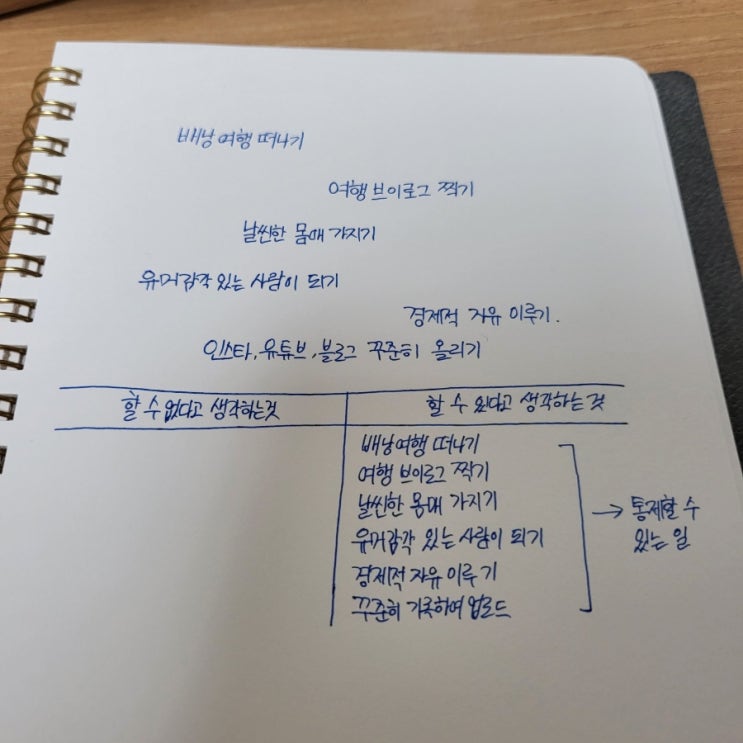 배낭여행 떠나기
여행 브이로그 찍기
날씬한 몸매 가지기
유머감각 있는 사람이 되기
경제적 자유 이루기.
인스타, 유튜브, 블로그 꾸준히 올리기
할 수 없다고 생각하는것
할 수 있다고 생각하는 것
배낭여행 떠나기
여행 브이로그 찍기
날씬한 몸매 가지기
유머감각 있는 사람이 되기
경제적 자유 이루기
꾸준히 기록하여 업로드
→ 통제할 수
있는 일